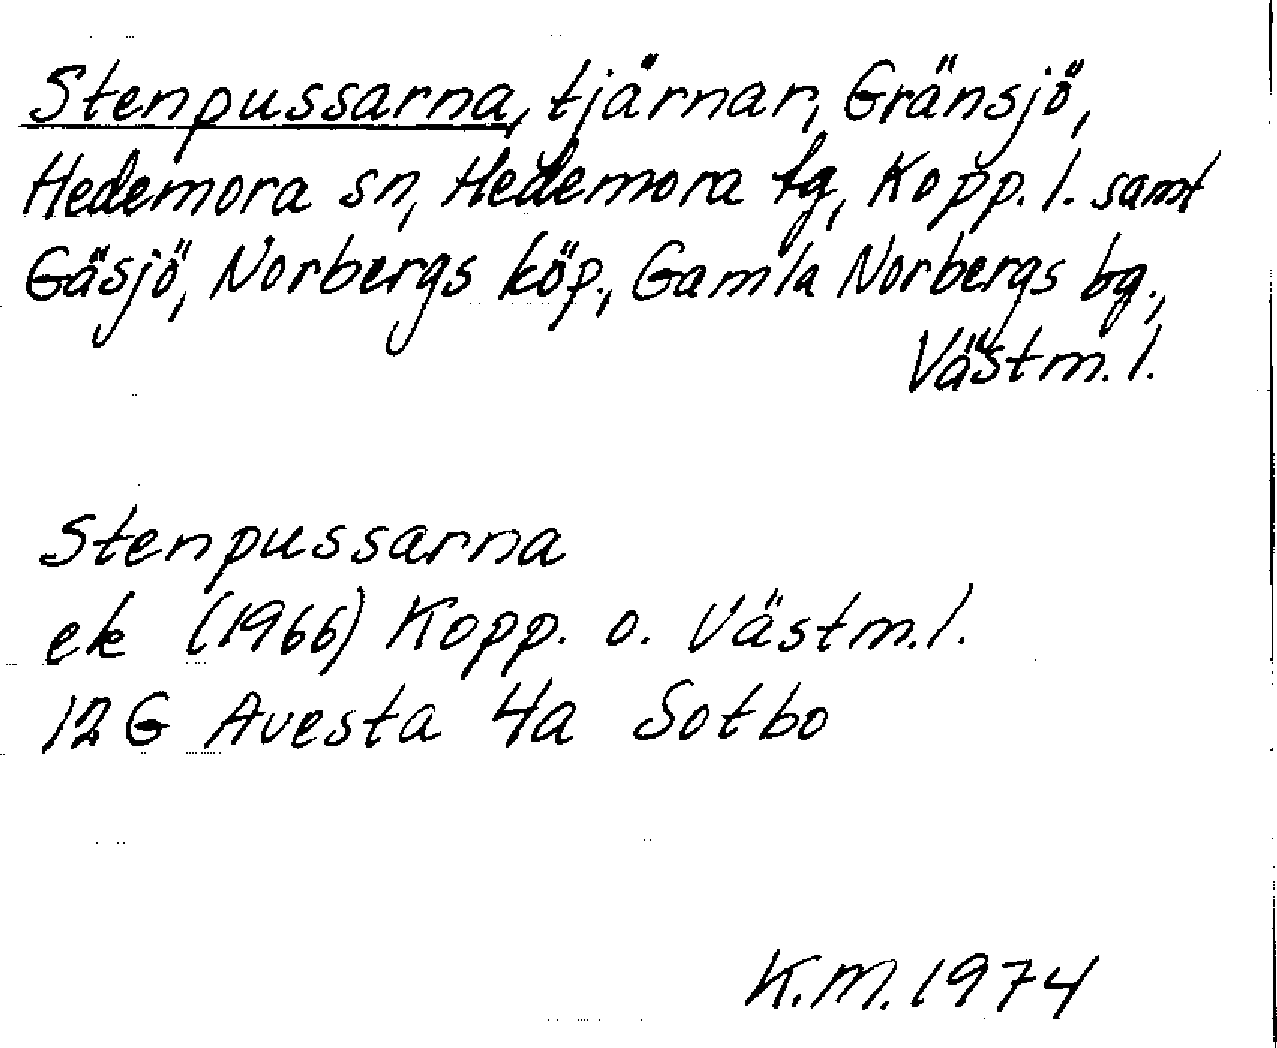 Stenpussarna, tjärnar, Gränsjö,
Hedemora sn, Hedemora tg, Kopp. l. samt
Gäsjö, Norbergs köp., Gamla Norbergs bg.,
Västm. l.
Stenpussarna
ek (1966) Kopp. o. Västm. l.
12 G Avesta 4a Sotbo
K.M. 1974